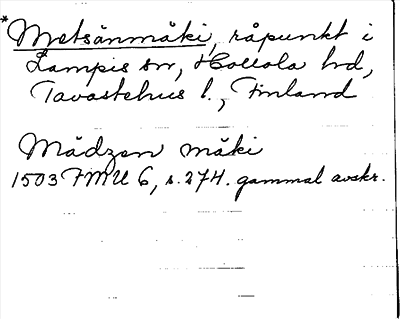 *Metsänmäki, råpunkt i
Lampis sn, Hollola hd,
Tavastehus l., Finland
Mädzen mäki
1503 FMU 6, s. 274. gammal avskr.